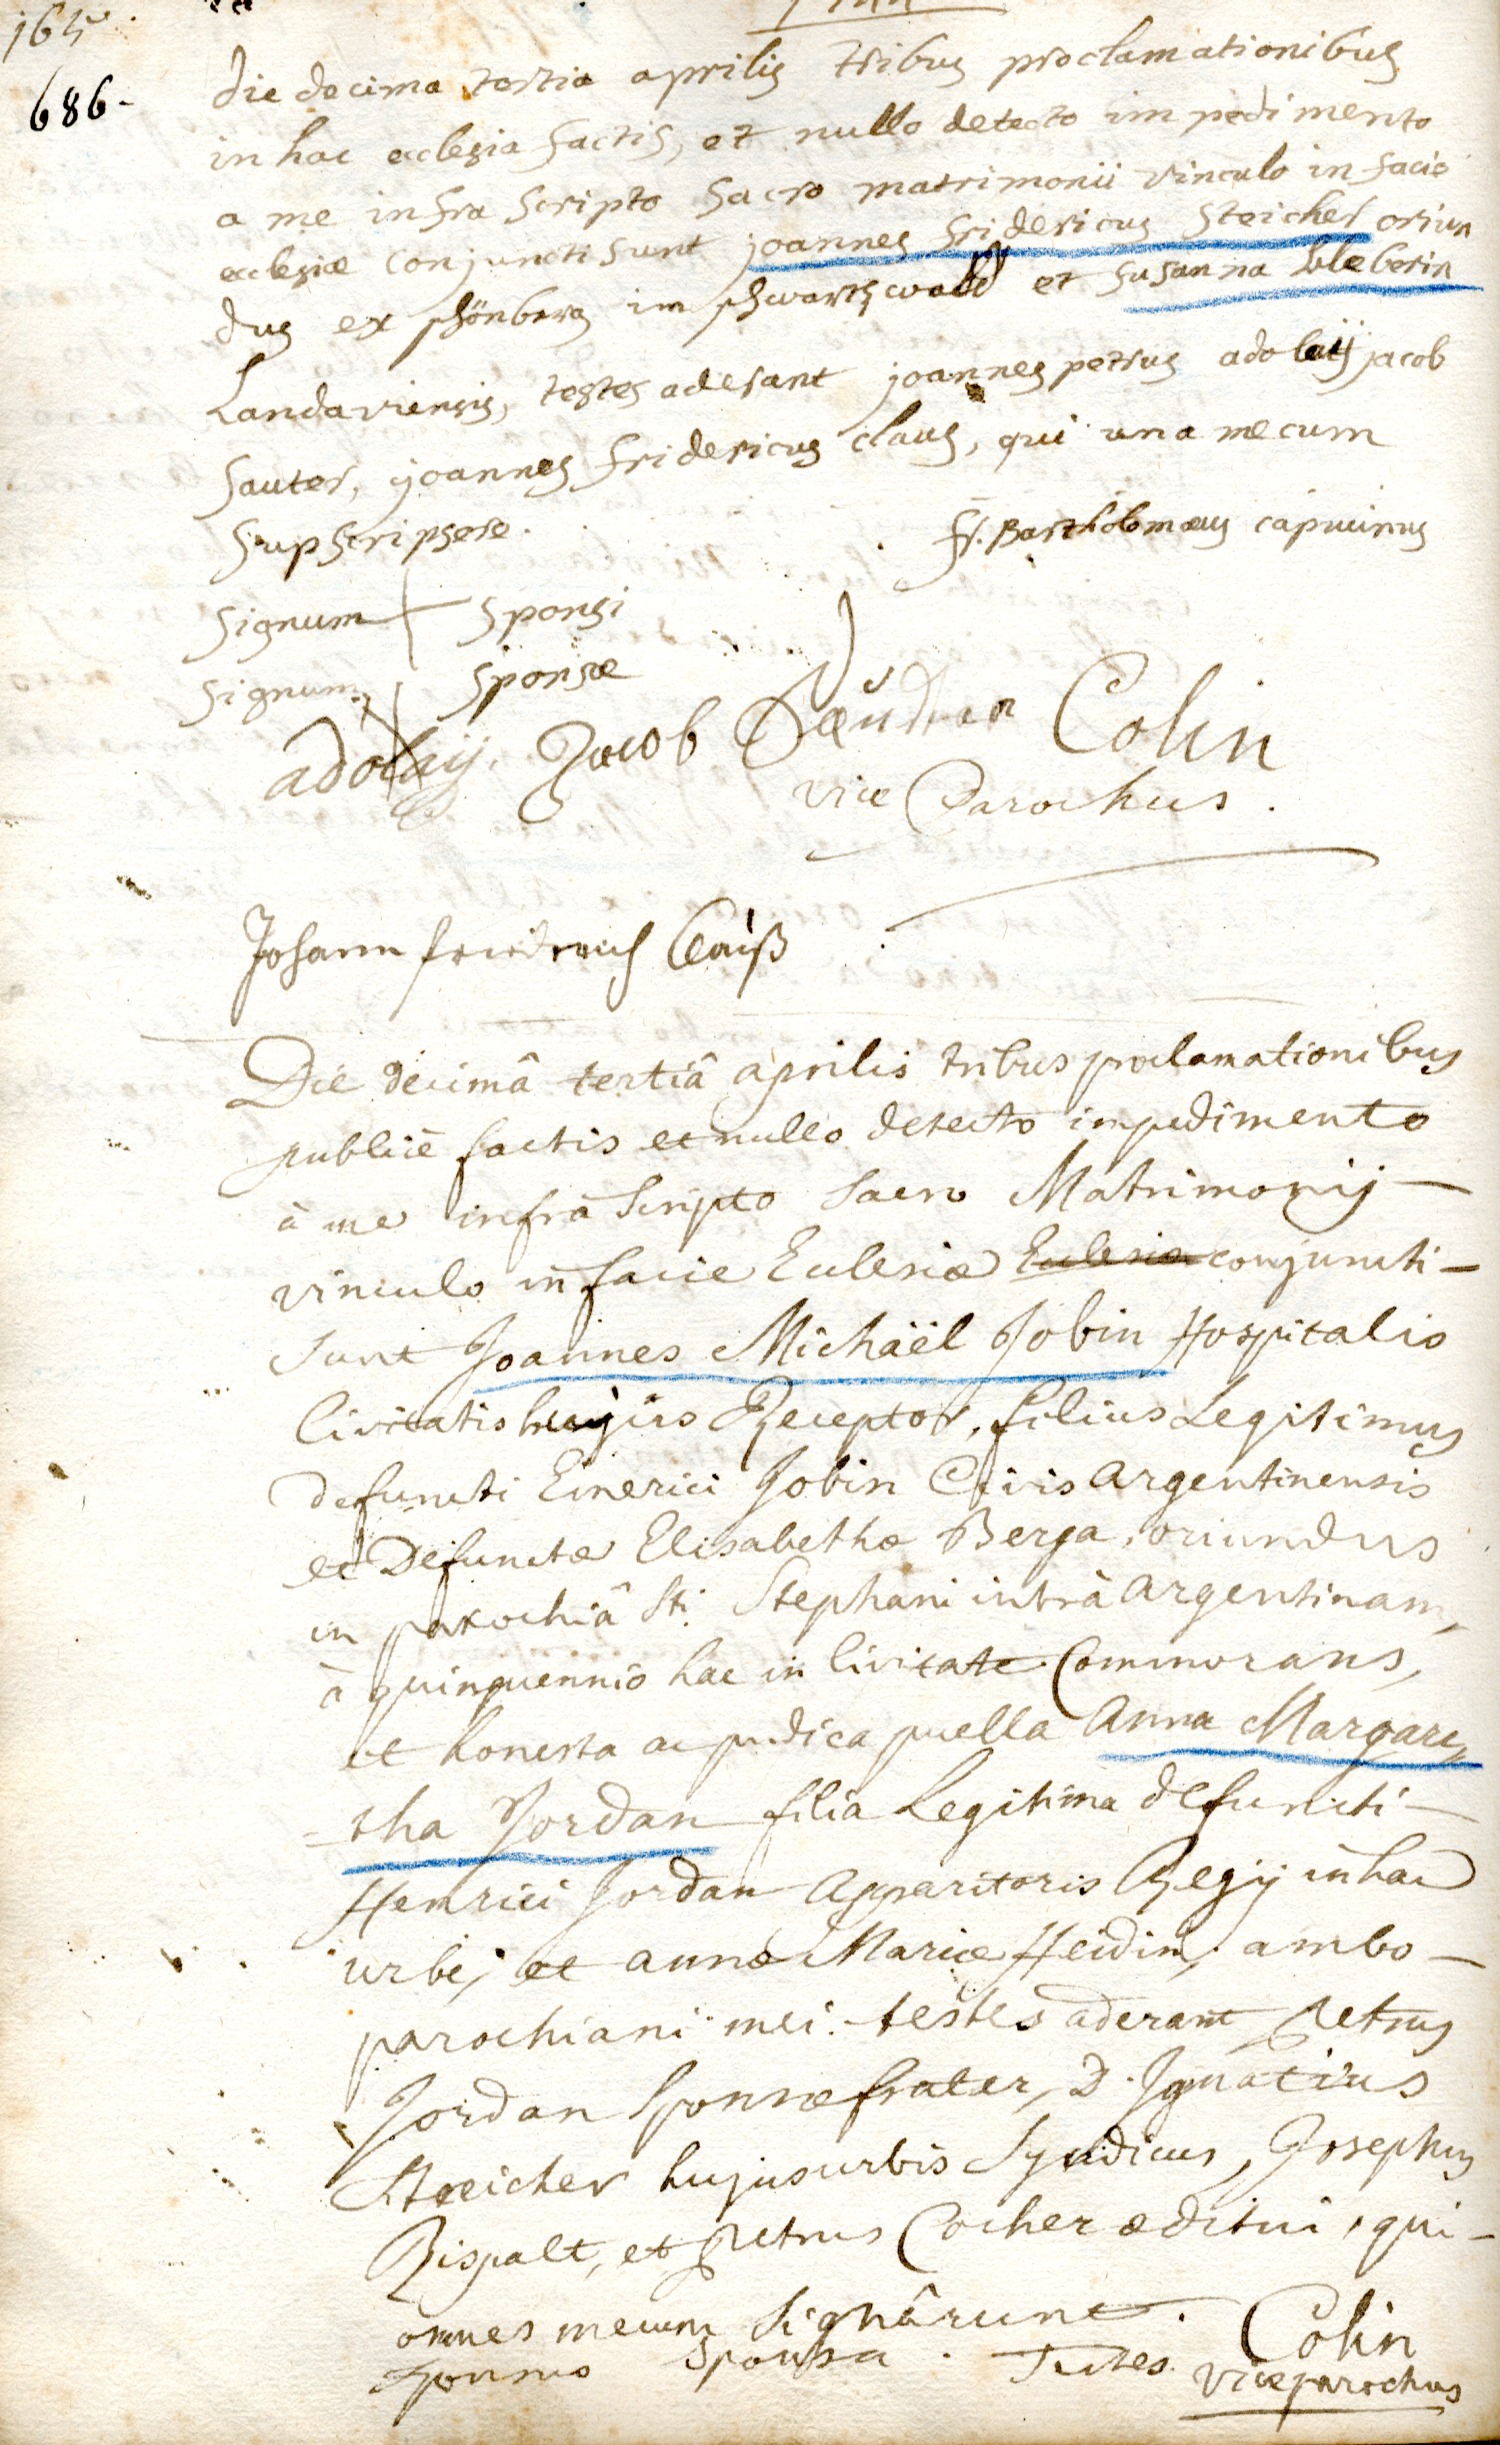 165
686-
die decima tertia aprilis tribus proclamationibus
in hac ecclesia factis, et nullo detecto impedimento
a me infra scripto sacro matrimonii vinculo in facie
ecclesiæ conjuncti sunt joannes fridericus steicher oriun
dus ex schönberg im schwartzwald et susanna kleberin
Landaviensis, testes aderant joannes petrus adolaij jacob
sauter, joannes fridericus claus, qui una mecum
supscripsere.
fr. Bartholomæus capucinus
signum sponsi
signum sponsæ
adolaij. Jacob Colin
vice Parochus.
Johann friedrich Clauß
Die decimâ tertiâ aprilis tribus proclamationibus
publicè factis et nullo detecto impedimento
à me infrà scripto sacro Matrimonij
vinculo in facie Ecclesiæ Ecclesiæ conjuncti
sunt Joannes Michäël Jobin Hospitalis
Civitatis hujus Receptor, filius Legitimus
defuncti Emerici Jobin Civis Argentinensis
et Defunctæ Elisabethæ Berga, oriundus
in parochiâ Sti. Stephani intrà Argentinam,
à quinquennio hac in Civitate Commorans,
et honesta ac pudica puella Anna Margare
=tha Jordan filia Legitima defuncti
Henrici Jordan Apparitoris Regij in hac
urbe, et annæ Mariæ Heidin, ambo
parochiani mei. testes aderant Petrus
Jordan sponsæ frater, D. Ignatius
Streicher hujus urbis Syndicus, Josephus
Rispalt, et Petrus Cocher æditui, qui
omnes mecum signârunt.
sponsus sponsa. Testes. Colin
viceparochus